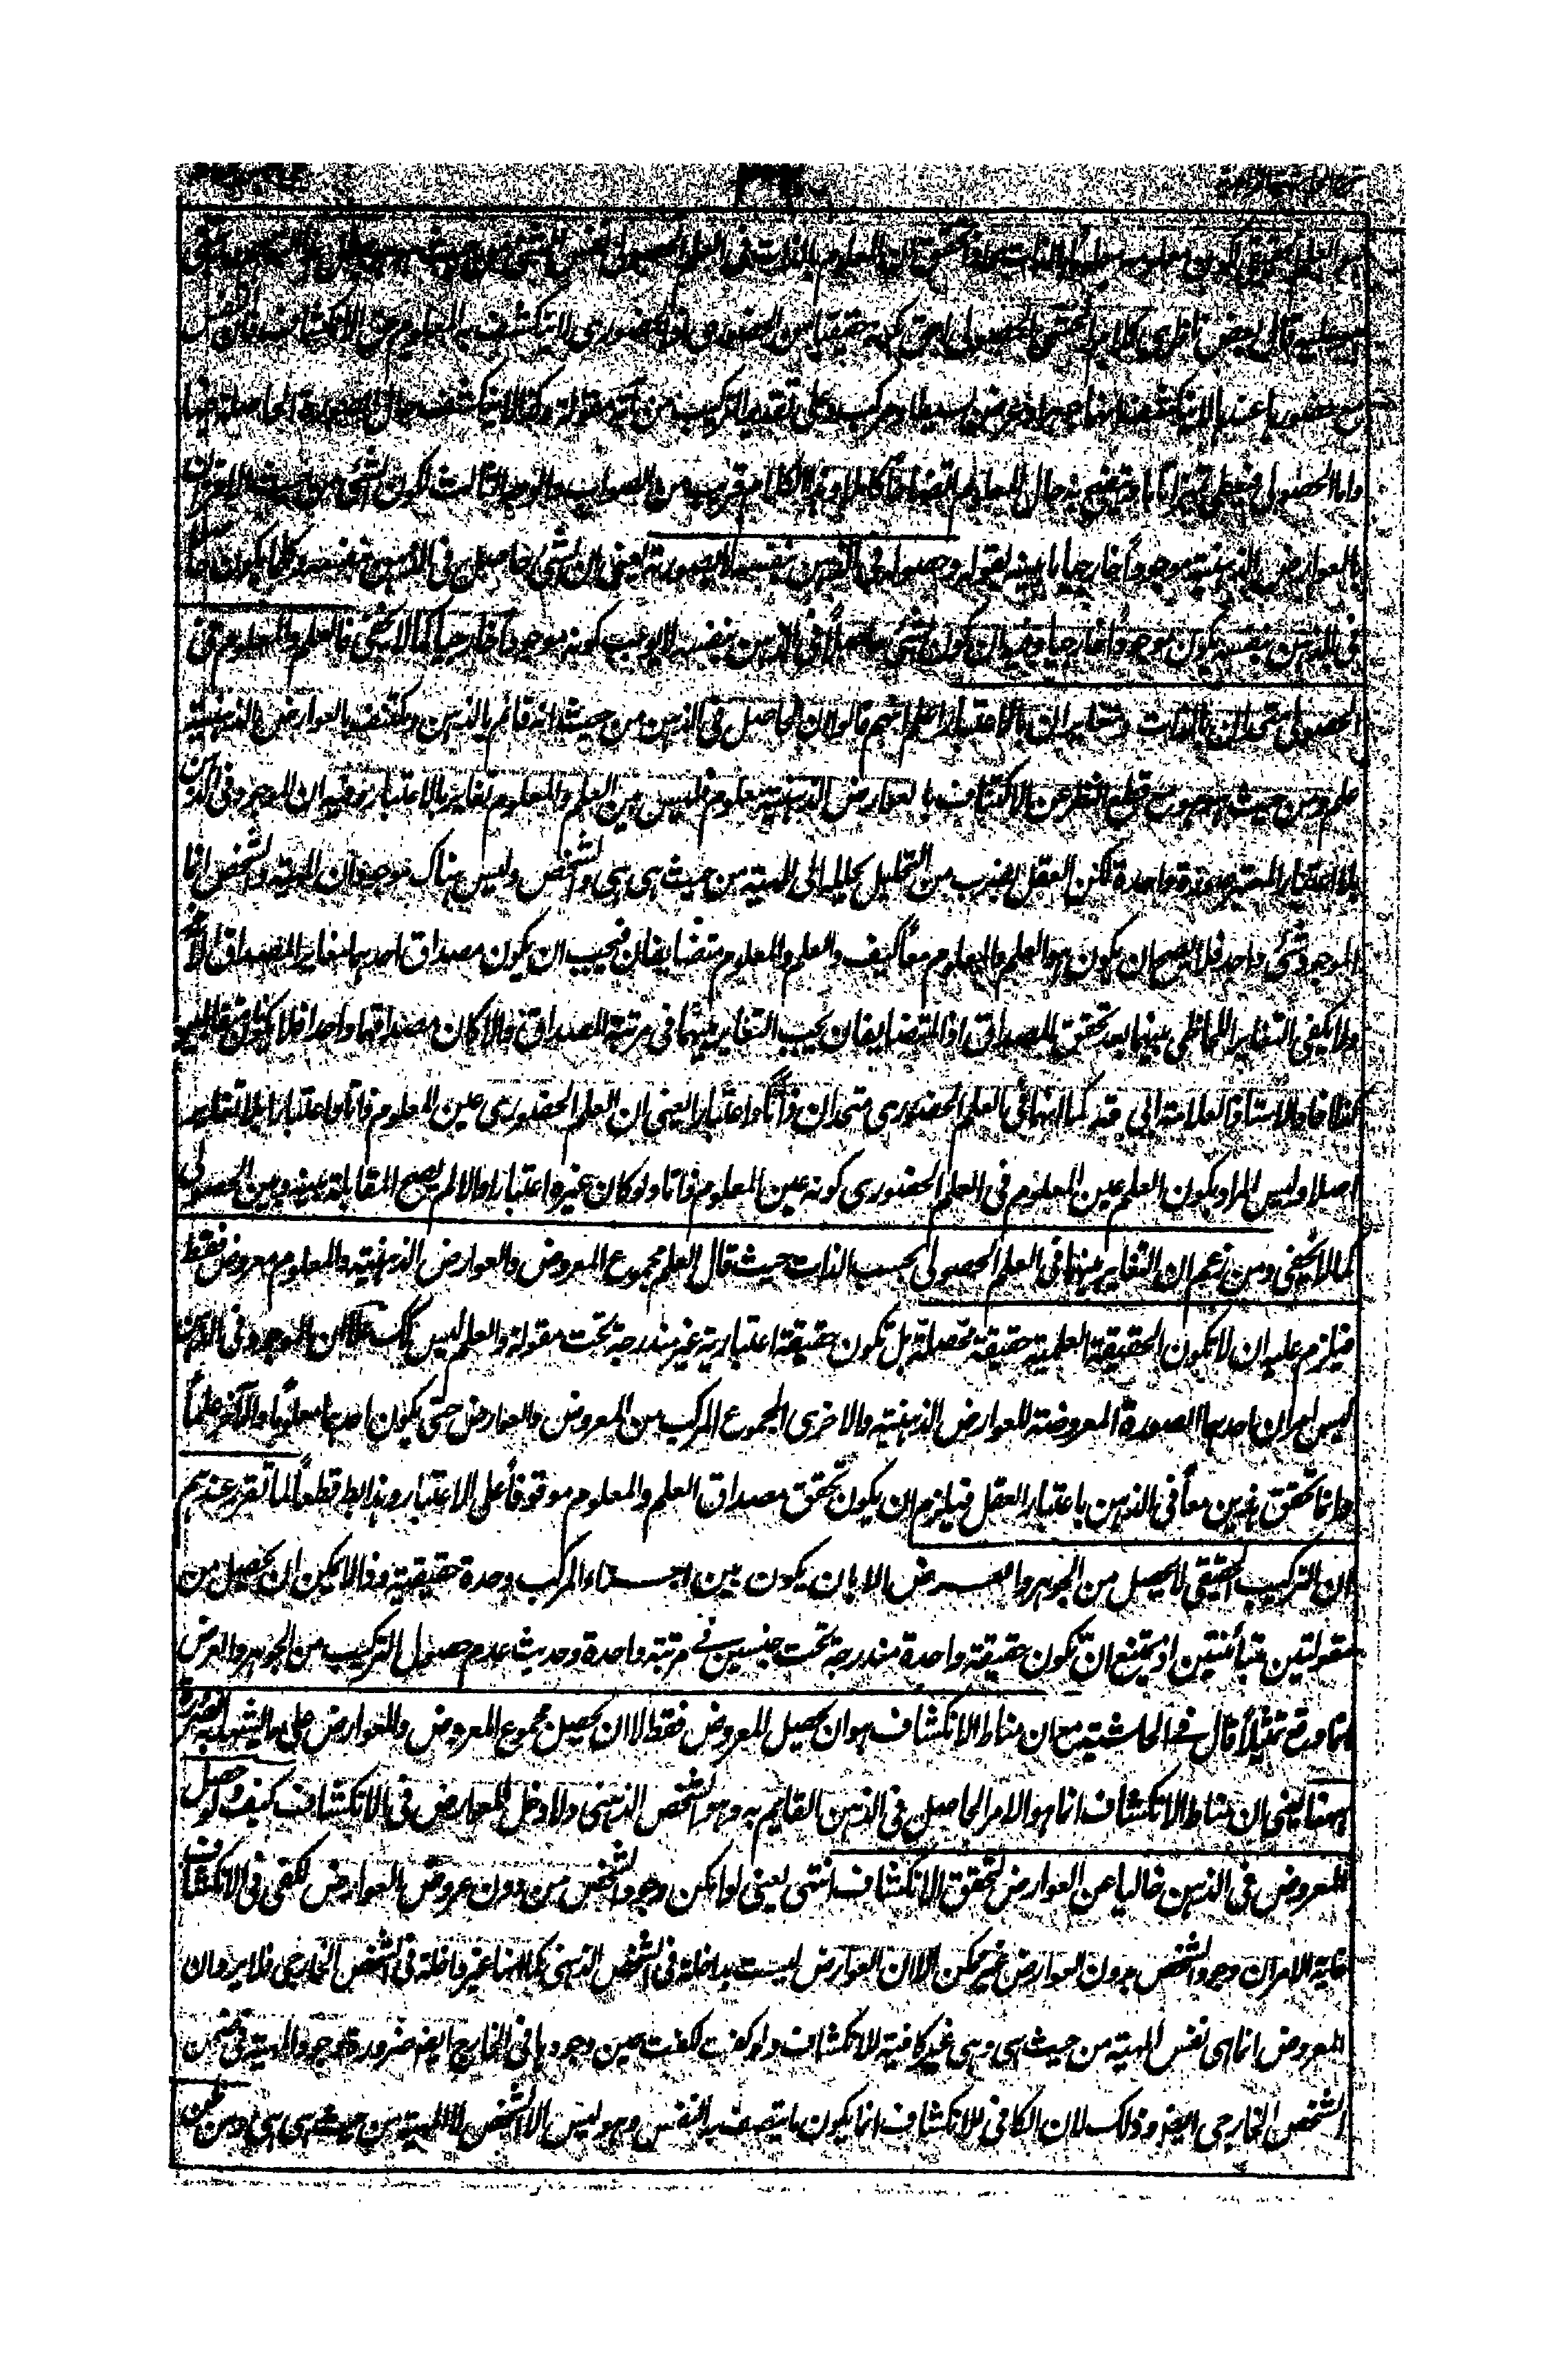 هو العلم الحقيقي لكون معلومه معلوما بالذات اذ التحقق ان المعلوم بالذات في العلم الحصولي نفس الشئ من حيث هو
قال بعض ناظري كلام المحقق الحصولي احق كونه حقيقيا من الحضوري اذ الحضوري لا ينكشف به المعلوم حق الانكشاف فان
مع حضورها عندنا لا ينكشف انها جوهر او عرض بسيط او مركب وعلى تقدير التركيب من اية مقولة وكذا لا ينكشف حال الصورة الحاصلة فيها
واما الحصولي فيعطي تميزا تاما ويتضح به حال المعلوم اتضاحا كاملا وهذا الكلام قريب من الصواب والوجه الثالث لكون الشئ من حيث الاقتران
بالعوارض الذهنية موجودا خارجيا ما بينه بقوله وحصوله في الذهن بنفسه لا بصورته يعني ان الشئ حاصل في الذهن بنفسه وكلما يكون حاصلا
في الذهن بنفسه يكون موجودا خارجيا وفيه ان كون الشئ حاصلا في الذهن بنفسه لا يوجب كونه موجودا خارجيا كما لا يخفى فالعلم والمعلوم في
الحصولي متحدان بالذات ومتغايران بالاعتبار اعلم انهم قالوا ان الحاصل في الذهن من حيث انه قائم بالذهن ومكتنف بالعوارض الذهنية
علم ومن حيث هو هو مع قطع النظر عن الاكتناف بالعوارض الذهنية معلوم فليس بين العلم والمعلوم تغاير بالاعتبار وفيه ان الموجود في الذهن
بلا اعتبار المعتبر صورة واحدة لكن العقل بضرب من التحليل يحلله الى المهية من حيث هي هي والتشخص وليس هناك موجودان المهية والتشخص انما
الموجود شئ واحد فلا يصح ان يكون هو العلم والمعلوم معا كيف والعلم والمعلوم متضايفان فيجب ان يكون مصداق احدهما مغايرا لمصداق الآخر
ولا يكفي التغاير اللحاظي بينهما بعد تحقق المصداق اذ المتضايفان يجب التغاير بينهما في مرتبة المصداق والا كان مصداقهما واحدا فلا يكونان متقابلين
كذا افاد الاستاذ العلامة ابي قده كما انهما في العلم الحضوري متحدان ذاتا واعتبارا يعني ان العلم الحضوري عين المعلوم ذاتا واعتبارا بلا تغاير
اصلا وليس المراد بكون العلم عين المعلوم في العلم الحضوري كونه عين المعلوم ذاتا ولو كان غيره اعتبارا والا لم يصح المقابلة بينه وبين الحصولي
كما لا يخفى ومن زعم ان التغاير بينهما في العلم الحصولي بحسب الذات حيث قال العلم مجموع المعروض والعوارض الذهنية والمعلوم معروض فقط
فيلزم عليه ان لا تكون الحقيقة العلمية حقيقة محصلة بل تكون حقيقة اعتبارية غير مندرجة تحت مقولة والعلم ليس كذلك علا ان الموجود في الذهن
ليس امران احدهما الصورة المعروضة للعوارض الذهنية والاخرى المجموع المركب من المعروض والعوارض حتى يكون احدهما معلوما والآخر علما
وانما تحقق هذين معا في الذهن باعتبار العقل فيلزم ان يكون تحقق مصداق العلم والمعلوم موقوفا على الاعتبار وهذا بط قطعا لما تقرر عندهم
ان التركيب الحقيقي لا يحصل من الجوهر والعرض الا بان يكون بين اجزاء المركب وحدة حقيقية وذا لا يمكن ان يحصل من
مقولتين متبائنتين اذ يمتنع ان تكون حقيقة واحدة مندرجة تحت جنسين في مرتبة واحدة وحديث عدم حصول التركيب من الجوهر والعرض
انما وقع تمثيلا قال في الحاشية مع ان مناط الانكشاف هو ان يحصل المعروض فقط لا ان يحصل مجموع المعروض والعوارض على ما يشهد به الضرورة
ههنا يعني ان مناط الانكشاف انما هو الامر الحاصل في الذهن القايم به وهو الشخص الذهني ولا دخل للعوارض في الانكشاف كيف ولو حصل
المعروض في الذهن خاليا عن العوارض لتحقق الانكشاف انتهى يعني لو امكن وجود الشخص من دون عروض العوارض لكفى في الانكشاف
غاية الامر ان وجود الشخص بدون العوارض غير ممكن الا ان العوارض ليست بداخلة في الشخص الذهني كما انها غير داخلة في الشخص الخارجي فلا يرد ان
المعروض انما هي نفس المهية من حيث هي وهي غير كافية للانكشاف ولو كفت لكفت حين وجودها في الخارج ايضا ضرورة وجود المهية في ضمن
الشخص الخارجي ايضا وذلك لان الكافي للانكشاف انما يكون ما يتصف به النفس وهو ليس الا الشخص لا المهية من حيث هي هي ومن ظن